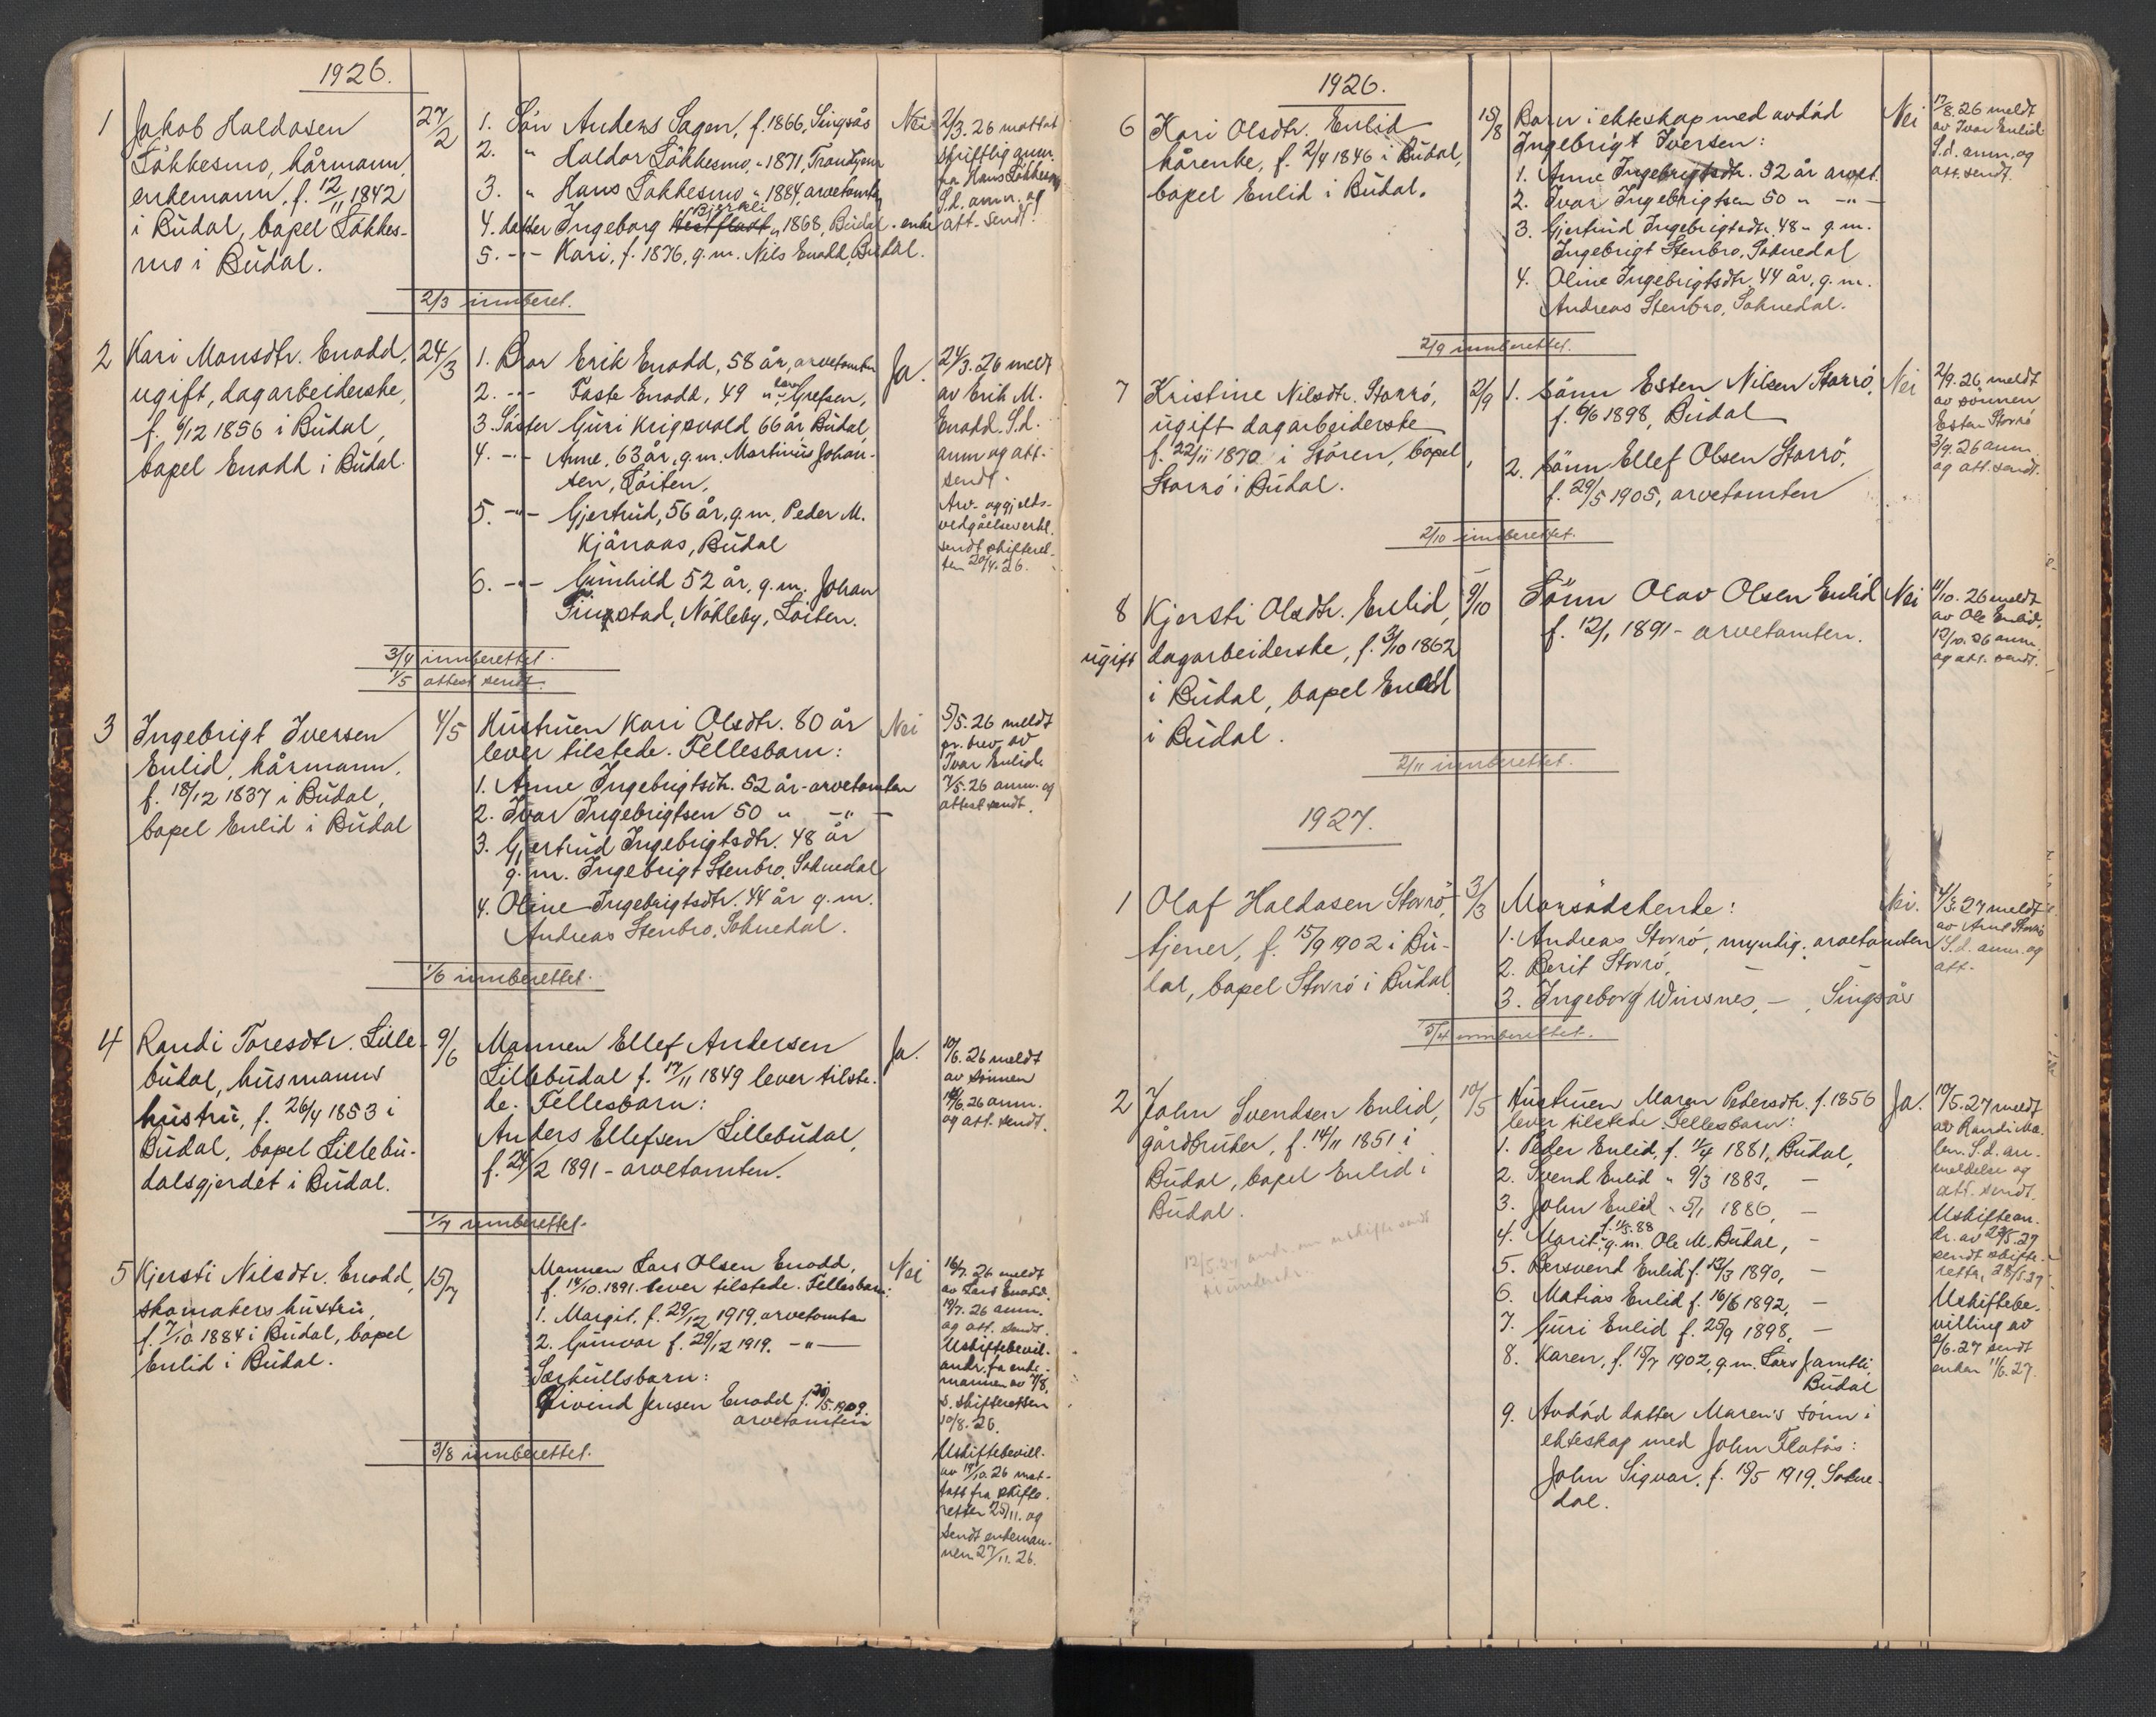 1926.
1 Jakob Haldosen
Løkkesmo, kårmann,
enkemann, f. 12/11 1842
i Budal, bopel Løkkes-
mo i Budal.
27/2
1. Søn Anders Sagen, f. 1866, Singsås
2. " Haldor Løkkesmo, " 1871, Trondhjem
3. " Hans Løkkesmo " 1884, arvetomten
Bjerkli
4. datter Ingeborg Vestflott " 1868, Budal - enke
5. -"- Kari, f. 1876, g.m. Nils Enodd, Budal.
Nei
2/3. 26 mottat
skriftlig anm.
fra Hans Løkkesmo
S.d. anm. og
att. sendt!
2/3 innberet.
2 Kari Monsdtr. Enodd,
ugift, dagarbeiderske,
f. 6/12 1856 i Budal,
bopel Enodd i Budal.
24/3
1. Bror Erik Enodd, 58 år, arvetomten
2. -"- Taste Enodd, 49 " Grefsen,
3. Søster Guri Krigsvold 66 år Budal
4. -"- Anne, 63 år, g.m. Martinus Johan-
sen, Løiten.
5. -"- Gjertrud, 56 år, g.m. Peder M.
Kjønaas, Budal
6. -"- Gunhild 52 år, g.m. Johan
Tingstad, Nøkleby, Løiten.
Ja.
24/3. 26 meldt
av Erik M.
Enodd. S.d.
anm og att.
sendt.
Arv- og gjelds-
vedgåelseserkl.
sendt skifteret-
ten 20/4. 26.
3/4 innberettet.
1/5 attest sendt.
3 Ingebrigt Iversen
Enlid, kårmann,
f. 18/12 1837 i Budal,
bopel Enlid i Budal
4/5
Hustruen Kari Olsdtr. 80 år
lever tilstede. Fellesbarn:
1. Anne Ingebrigtsdtr. 52 år - arvetomten
2. Ivar Ingebrigtsen 50 " -"-
3. Gjertrud Ingebrigtsdtr. 48 år
g.m. Ingebrigt Stenbro, Soknedal
4. Oline Ingebrigtsdtr. 44 år g.m.
Andreas Stenbro, Soknedal.
Nei
5/5. 26 meldt
pr. brev av
Ivar Enlid.
7/5. 26 anm. og
attest sendt.
1/6 innberettet.
4 Randi Toresdtr. Lille-
budal, husmanns
hustru, f. 26/4 1853 i
Budal, bopel Lillebu-
dalsgjerdet i Budal.
9/6
Mannen Ellef Andersen
Lillebudal f. 17/11 1849 lever tilste-
de. Fellesbarn:
Anders Ellefsen Lillebudal,
f. 24/2 1891 - arvetomten.
Ja.
10/6. 26 meldt
av sönnen
10/6. 26 anm.
og att. sendt.
1/7 innberettet.
5 Kjersti Nilsdtr. Enodd,
skomakers hustru,
f. 7/10 1884 i Budal, bopel
Enlid i Budal.
15/7
Mannen Lars Olsen Enodd,
f. 14/10. 1891. lever tilstede. Fellesbarn:
1. Margit, f. 29/12 1919, arvetomten
2. Gunvor f. 29/12 1919. -"-
Særkullsbarn:
Øivind Jensen Enodd f. 20/5. 1909.
arvetomten
Nei
16/7. 26 meldt
av Lars Enodd.
19/7. 26 anm.
og att. sendt.
Uskiftebevil.
andr. fra enke-
mannen av 7/8,
s. skifteretten
10/8. 26.
Uskiftebevill.
av 19/10. 26 mot-
tatt fra skifte-
retten 25/11. og
sendt enkeman-
nen 27/11. 26.
3/8 innberettet.
1926.
6 Kari Olsdtr. Enlid
kårenke, f. 2/4 1846 i Budal,
bopel Enlid i Budal.
15/8
Barn i ekteskap med avdød
Ingebrigt Iversen:
1. Anne Ingebrigtsdtr. 52 år arvet.
2. Ivar Ingebrigtsen 50 " -"-
3. Gjertrud Ingebrigtsdtr. 48 " g.m.
Ingebrigt Stenbro, Soknedal
4. Oline Ingebrigtsdtr. 44 år, g.m.
Andreas Stenbro, Soknedal.
Nei
17/8. 26 meldt
av Ivar Enlid.
S.d. anm. og
att. sendt.
2/9 innberettet.
7 Kristine Nilsdtr. Storrö,
ugift dagarbeiderske
f. 22/11 1870 i Stören, bopel
Storrö i Budal.
2/9
1. Sönn Esten Nilsen Storrö,
f. 6/6 1898, Budal
2. Sönn Ellef Olsen Storrö,
f. 29/5 1905, arvetomten
Nei
2/9. 26, meldt
av sönnen
Esten Storrö
3/9. 26 anm.
og att. sendt.
2/10 innberettet.
8 Kjersti Olsdtr. Enlid,
ugift dagarbeiderske, f. 3/10 1862
i Budal, bopel Enodd
i Budal.
9/10
Sönn Olav Olsen Enlid
f. 12/1 1891 - arvetomten.
Nei
11/10. 26 meldt
av Ole Enlid.
12/10. 26 anm.
og att. sendt.
2/11 innberettet.
1927.
1 Olaf Haldosen Storrö,
tjener, f. 15/9 1902 i Bu-
dal, bopel Storrö i Budal.
3/3
Morsödskende:
1. Andreas Storrö, myndig. arvetomten
2. Berit Storrö, -
3. Ingeborg Winsnes, - , Singsås
Nei.
4/3. 27 meldt
av Arne Storrö
S.d. anm. og
att.
5/4 innberettet.
2 John Svendsen Enlid,
gårdbruker, f. 14/11 1851 i
Budal, bopel Enlid i
Budal.
10/5
Hustruen Maren Pedersdtr. f. 1856
lever tilstede. Fellesbarn:
1. Peder Enlid, f. 11/4 1881, Budal,
2. Svend Enlid " 9/3 1883, -
3. John Enlid " 5/1 1886, -
f. 1/3. 88
4. Marit, g.m. Ole M. Budal, -
5. Bersvend Enlid f. 12/3 1890, -
6. Matias Enlid f. 16/6 1892, -
7. Guri Enlid f. 25/9 1898, -
8. Karen, f. 15/7 1902, g.m. Lars Jamtli,
Budal
9. Avdød datter Maren's sönn i
ekteskap med John Flatås:
John Sigvar, f. 19/5 1919, Sokne-
dal.
Ja.
10/5. 27 meldt
av Randi Mo-
len. S.d. an-
meldelse og
att. sendt.
Uskiftean-
dr. av 23/5. 27
sendt skifte-
retten, 28/5. 27.
Uskiftebe-
villing av
2/6. 27 sendt
enken 11/6. 27.